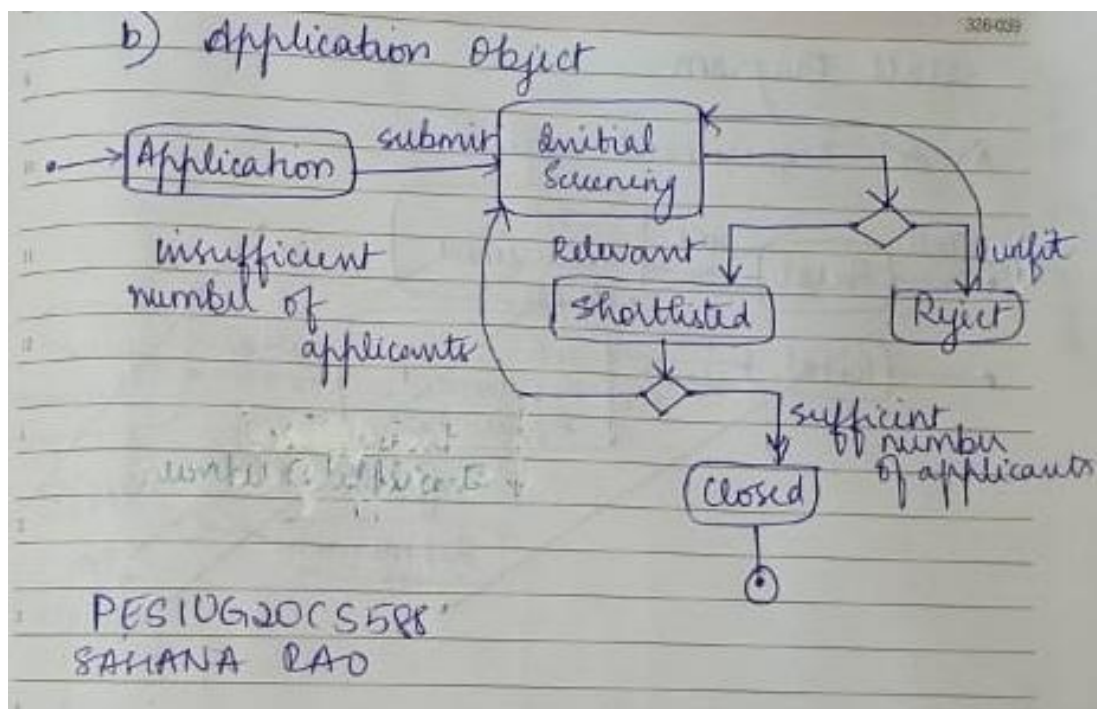 326-039
b) Application Object
Application
submit
Initial
Screening
insufficient
number of
applicants
Relevant
unfit
Shortlisted
Reject
sufficient
number
of applicants
Closed
SAHANA RAO